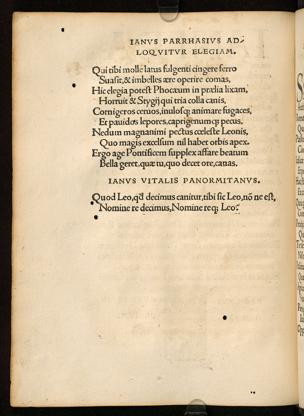 IANVS PARRHASIVS AD⸗
LOQVITVR ELEGIAM.
Qui tibi molle latus fulgenti cingere ferro
Suasit, & imbelles ære operire comas,
Hic elegia potest Phocæum in prælia lixam,
Horruit & Stygij qui tria colla canis,
Cornigeros ceruos, inulosq; animare fugaces,
Et pauidos lepores, caprigenumq; pecus,
Nedum magnanimi pectus cœleste Leonis,
Quo magis excelsum nil habet orbis apex.
Ergo age Pontificem supplex affare beatum
Bella geret. quæ tu, quo decet ore, canas.
IANVS VITALIS PANORMITANVS.
Quod Leo, qđ decimus canitur, tibi sic Leo, nō ne est,
Nomine re decimus, Nomine req; Leo?